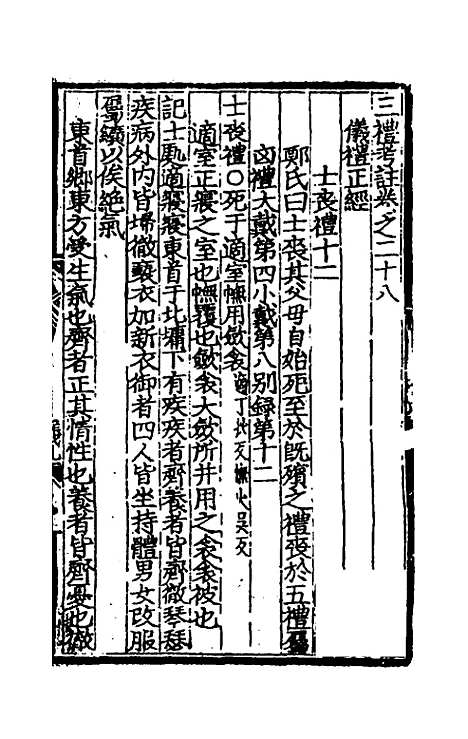 三禮考註卷之二十八
儀禮正經
士喪禮十二
鄭氏曰士喪其父母自始死至於既殯之禮喪於五禮屬
凶禮大戴第四小戴第八別錄第十二
士喪禮○死于適室幠用斂衾 適丁狄反幠火吳反
適室正寢之室也幠覆也斂衾大斂所并用之衾衾被也
記士處適寢寢東首于北墉下有疾疾者齊養者皆齊徹琴瑟
疾病外内皆埽徹褻衣加新衣御者四人皆坐持體男女改服
屬纊以俟絶氣
東首鄉東方受生氣也齊者正其情性也養者皆齊憂也徹